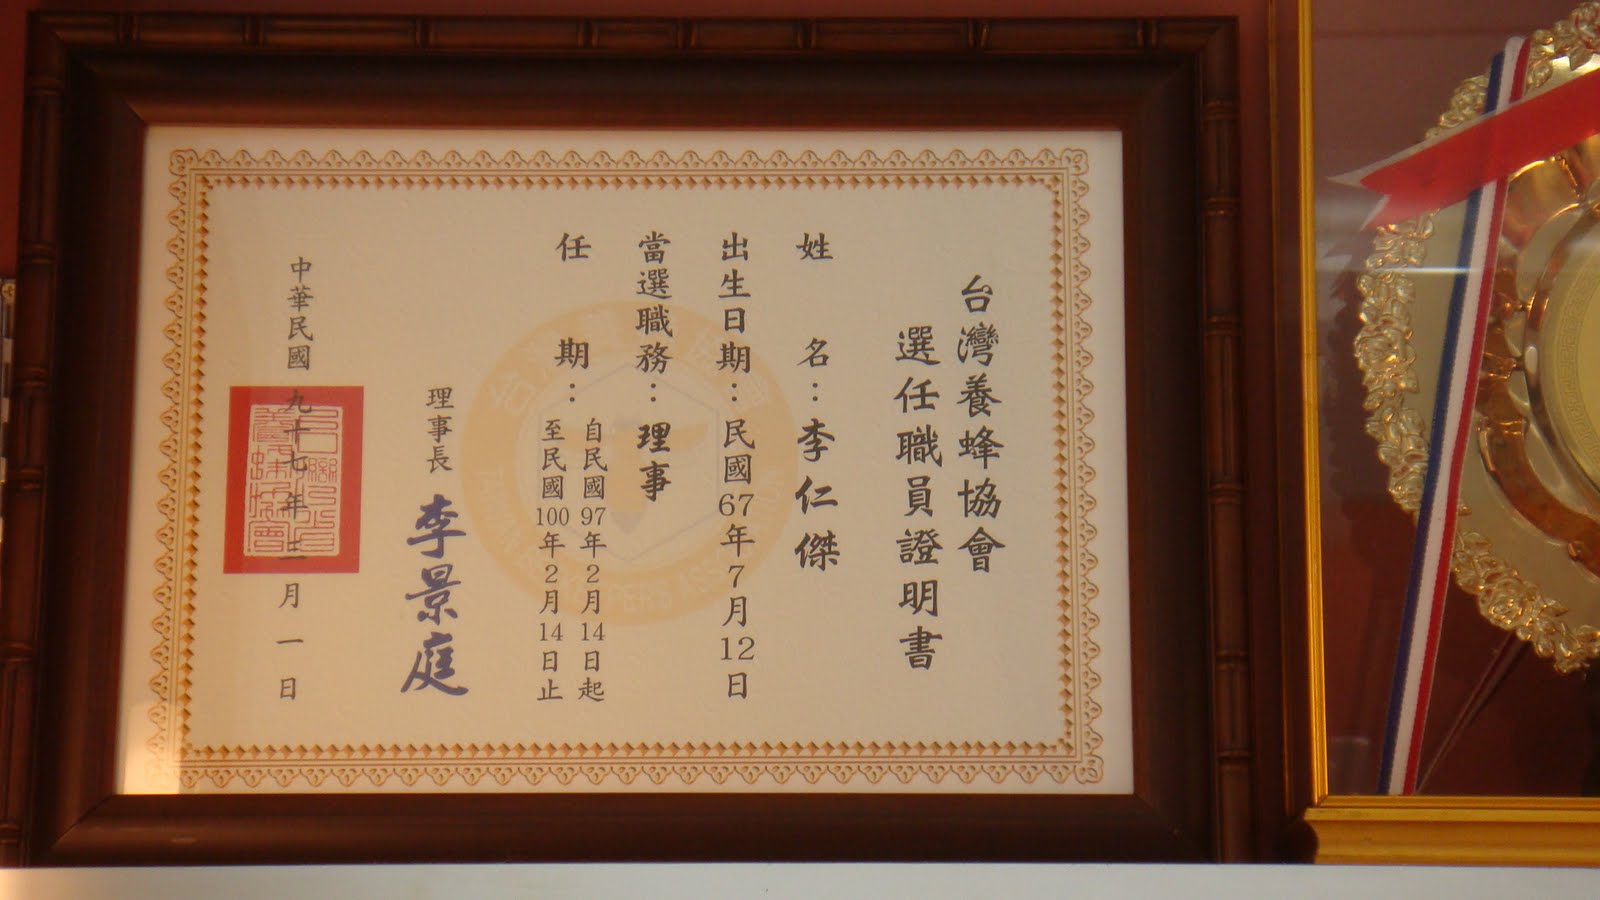 台灣養蜂協會
選任職員證明書
姓名：李仁傑
出生日期：民國67年7月12日
當選職務：理事
任期：
自民國97年2月14日起
至民國100年2月14日止
理事長 李景庭
中華民國九十七年三月一日